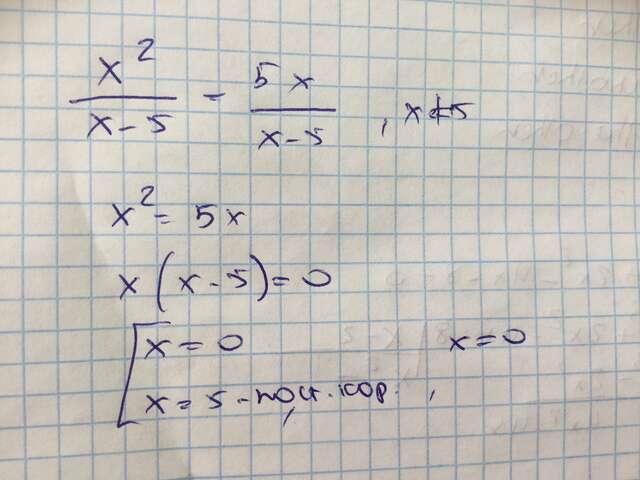 x²/(x-5) = 5x/(x-5), x≠5
x² = 5x
x(x-5) = 0
[x = 0
x = 5 - пост. кор.,
x = 0